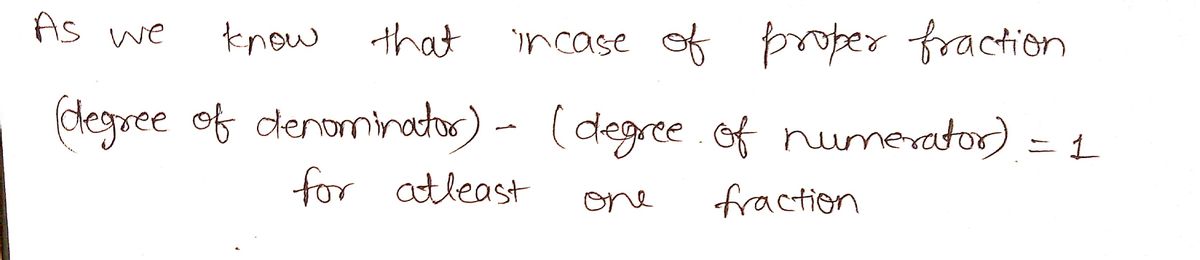 As we know that incase of proper fraction
(degree of denominator) - (degree of numerator) = 1
for atleast one fraction